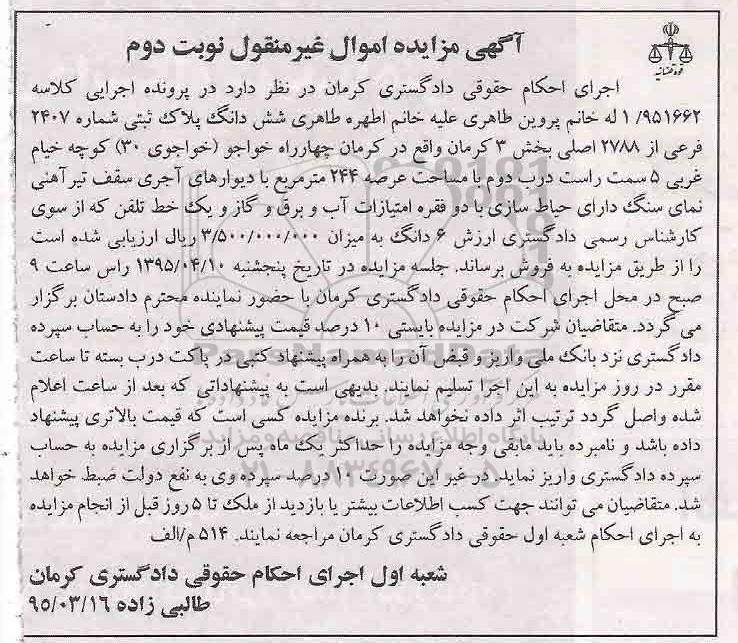 آگهی مزایده اموال غیرمنقول نوبت دوم
قوه قضائیه
اجرای احکام حقوقی دادگستری کرمان در نظر دارد در پرونده اجرایی کلاسه
۱/۹۵۱۶۶۲ له خانم پروین طاهری علیه خانم اطهره طاهری شش دانگ پلاک ثبتی شماره ۲۴۰۷
فرعی از ۲۷۸۸ اصلی بخش ۳ کرمان واقع در کرمان چهارراه خواجو (خواجوی ۳۰) کوچه خیام
غربی ۵ سمت راست درب دوم با مساحت عرصه ۲۴۴ مترمربع با دیوارهای آجری سقف تیرآهنی
نمای سنگ دارای حیاط سازی با دو فقره امتیازات آب و برق و گاز و یک خط تلفن که از سوی
کارشناس رسمی دادگستری ارزش ۶ دانگ به میزان ۳/۵۰۰/۰۰۰/۰۰۰ ریال ارزیابی شده است
را از طریق مزایده به فروش برساند. جلسه مزایده در تاریخ پنجشنبه ۱۳۹۵/۰۴/۱۰ راس ساعت ۹
صبح در محل اجرای احکام حقوقی دادگستری کرمان با حضور نماینده محترم دادستان برگزار
می گردد. متقاضیان شرکت در مزایده بایستی ۱۰ درصد قیمت پیشنهادی خود را به حساب سپرده
دادگستری نزد بانک ملی واریز و قبض آن را به همراه پیشنهاد کتبی در پاکت درب بسته تا ساعت
مقرر در روز مزایده به این اجرا تسلیم نمایند. بدیهی است به پیشنهاداتی که بعد از ساعت اعلام
شده واصل گردد ترتیب اثر داده نخواهد شد. برنده مزایده کسی است که قیمت بالاتری پیشنهاد
داده باشد و نامبرده باید مابقی وجه مزایده را حداکثر یک ماه پس از برگزاری مزایده به حساب
سپرده دادگستری واریز نماید. در غیر این صورت ۱۰ درصد سپرده وی به نفع دولت ضبط خواهد
شد. متقاضیان می توانند جهت کسب اطلاعات بیشتر یا بازدید از ملک تا ۵ روز قبل از انجام مزایده
به اجرای احکام شعبه اول حقوقی دادگستری کرمان مراجعه نمایند. ۵۱۴ م/الف
شعبه اول اجرای احکام حقوقی دادگستری کرمان
طالبی زاده ۹۵/۰۳/۱۶